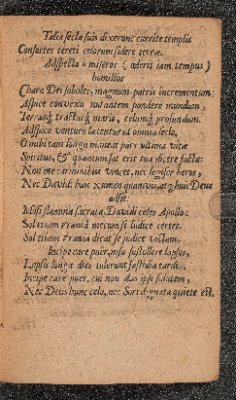 Talia sæcla suis dixerunt currite templis
Consortes tereti cælorum sidere
Adspecta ò miseros (aderit iam tempus)
humillos
Chara Dei soboles, magnum patris incrementum:
Aspice convexo nutantem pondere mundum,
Terrasq; tractusq; maris, cælumq; profundum.
Adspice venturo lætentur ut omnia seclo.
O mihi tam longa maneat pars ultima vitæ
Spiritus, & quantum sat erit tua dicere facta:
Non me carminibus vincet, nec
Nec Davidi: huic Numen quamvis, atq; huic Deus
adsit.
Mosi flammæ sacrata, Davidi celes Apollo:
Sol etiam mecum si iudice certet.
Sol etiam dicat se judice victum.
Incipe care puer, risu sustollere lapsos,
Lapsis longa dies tulerunt fastidia tarda.
Incipe care puer, cui non dat ipse salutem,
Nec Deus hunc celo, nec Sors dignata quiete est.